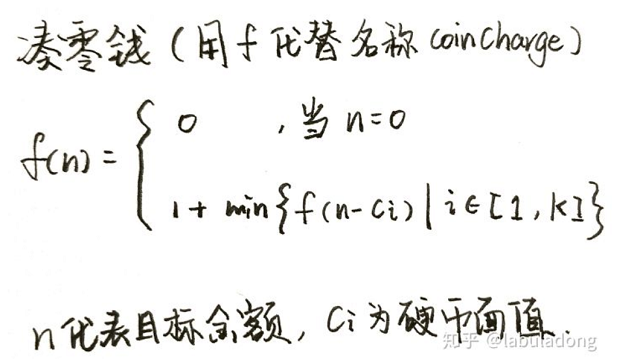 凑零钱（用f代替名称 coinCharge）
f(n) = { 0 , 当 n=0
1 + min{f(n-Ci) | i∈[1,k]}
n代表目标金额, Ci为硬币面值.
知乎 @labuladong